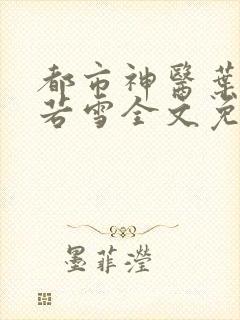 都市神醫葉
若雪全文免
墨菲瀅